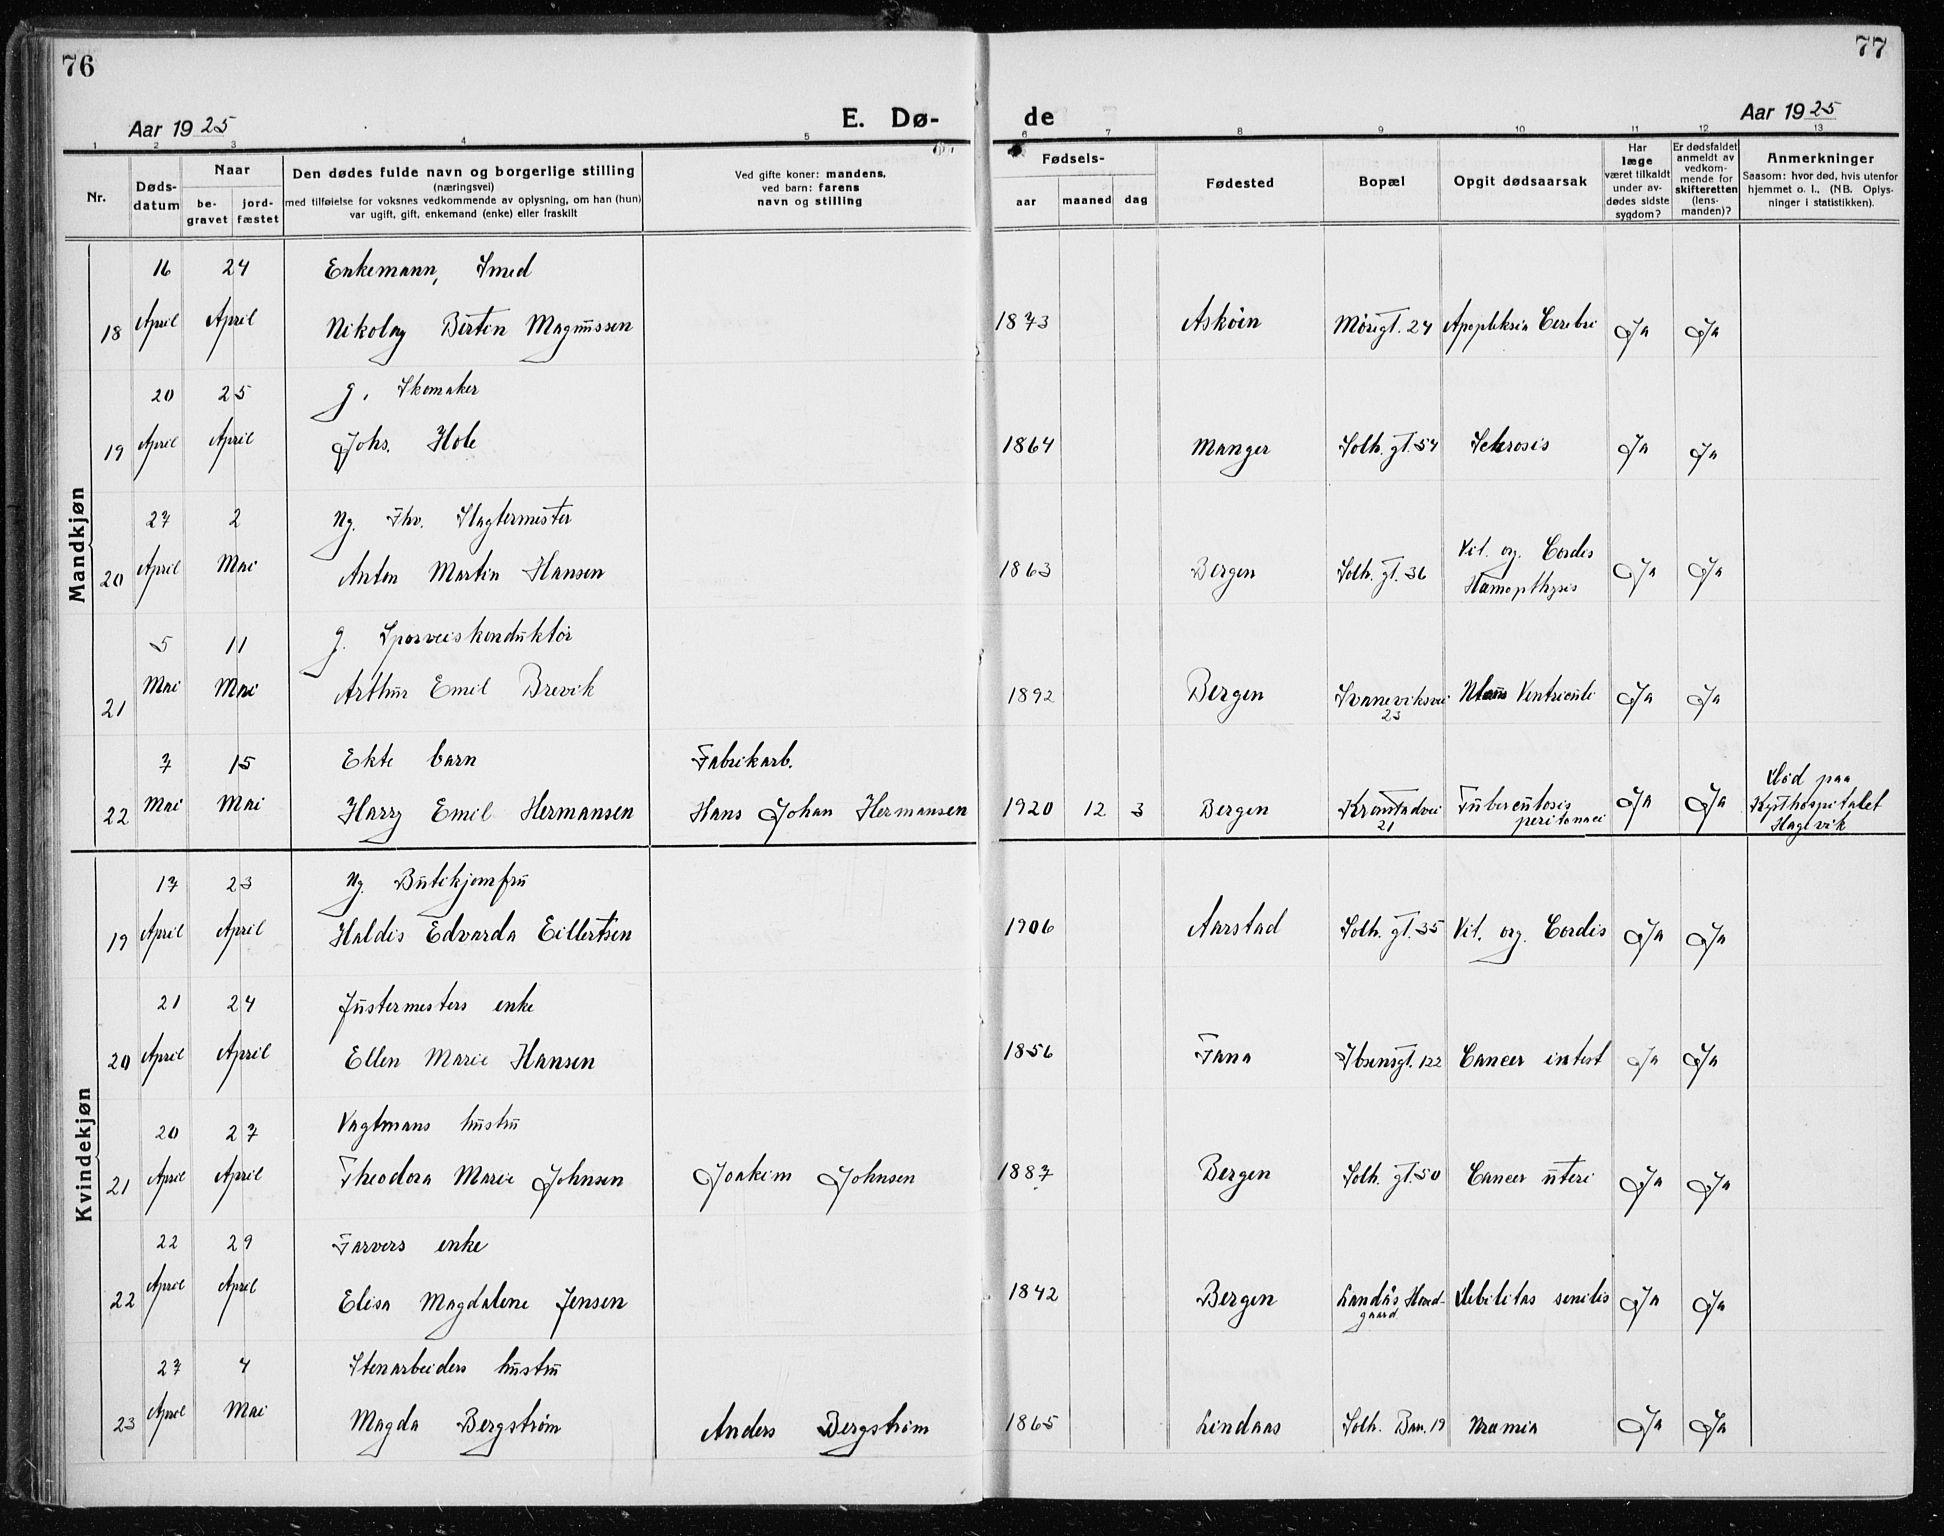 76
77
Aar 1925
E. Dø-
de
Aar 1925
1 2 3 4 5 6 7 8 9 10 11 12 13
Nr.
Døds-
datum
Naar
be-
gravet
jord-
fæstet
Den dødes fulde navn og borgerlige stilling
(næringsvei)
med tilføielse for voksnes vedkommende av oplysning, om han (hun)
var ugift, gift, enkemand (enke) eller fraskilt
Ved gifte koner: mandens,
ved barn: farens
navn og stilling
Fødsels-
aar maaned dag
Fødested
Bopæl
Opgit dødsaarsak
Har
læge
været tilkaldt
under av-
dødes sidste
sygdom?
Er dødsfaldet
anmeldt av
vedkom-
mende for
skifteretten
(lens-
manden)?
Anmerkninger
Saasom: hvor død, hvis utenfor
hjemmet o. l., (NB. Oplys-
ninger i statistikken).
Mandkjøn
16 24 Enkemann, Smed
18 April April Nikolay Bertin Magnussen 1873 Askøen Mørigt. 24 Apopleksia Cerebri Ja Ja
20 25 g. Skomaker
19 April April Johs. Hole 1864 Manger Solh. gt. 54 Sclerosis Ja Ja
27 2 Ug. Fhv. Slagtermester
20 April Mai Anton Martin Hansen 1863 Bergen Solh. gt. 36 Vit. org. Cordis Ja Ja
Hæmopthysis
5 11 g. Sporveiskonduktør
21 Mai Mai Arthur Emil Brevik 1892 Bergen Svaneviksvei Ventriculi Ja Ja
23
7 15 Ekte barn Fabrikarb.
22 Mai Mai Harry Emil Hermansen Hans Johan Hermansen 1920 12 3 Bergen Kronstadvei Tuberculosis Ja Ja
21 peritonaei
Død paa
Kysthospitalet
Hagevik
Kvindekjøn
17 23 Ug. Butikjomfru
19 April April Haldis Edvarda Eilertsen 1906 Aarstad Solh. gt. 35 Vit. org. Cordis Ja Ja
21 24 Justermesters enke
20 April April Ellen Marie Hansen 1856 Fana Ibsensgt. 122 Cancer intest Ja Ja
20 27 Vagtmans hustru
21 April April Theodora Marie Johnsen Joakim Johnsen 1887 Bergen Solh. gt. 50 Cancer uteri Ja Ja
22 29 Farvers enke
22 April April Elisa Magdalene Jensen 1842 Bergen Landås Hoved- Debilitas senilis Ja Ja
gaard
27 4 Stenarbeiders hustru
23 April Mai Magda Bergstrøm Anders Bergstrøm 1865 Lindaas Solh. Ban. 19 Uræmia Ja Ja